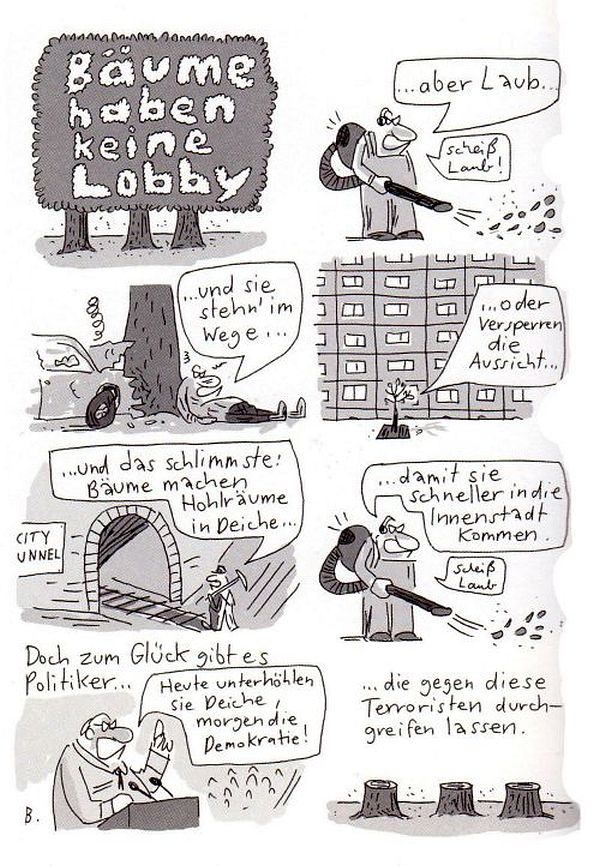 Bäume
haben
keine
Lobby
...aber Laub...
scheiß
Laub!
...und sie
stehn' im
Wege...
...oder
Versperren
die
Aussicht...
...und das schlimmste:
Bäume machen
Hohlräume
in Deiche...
CITY
UNNEL
...damit sie
schneller in die
Innenstadt
kommen.
scheiß
Laub
Doch zum Glück gibt es
Politiker...
Heute unterhöhlen
sie Deiche,
morgen die
Demokratie!
...die gegen diese
Terroristen durch-
greifen lassen.
B.